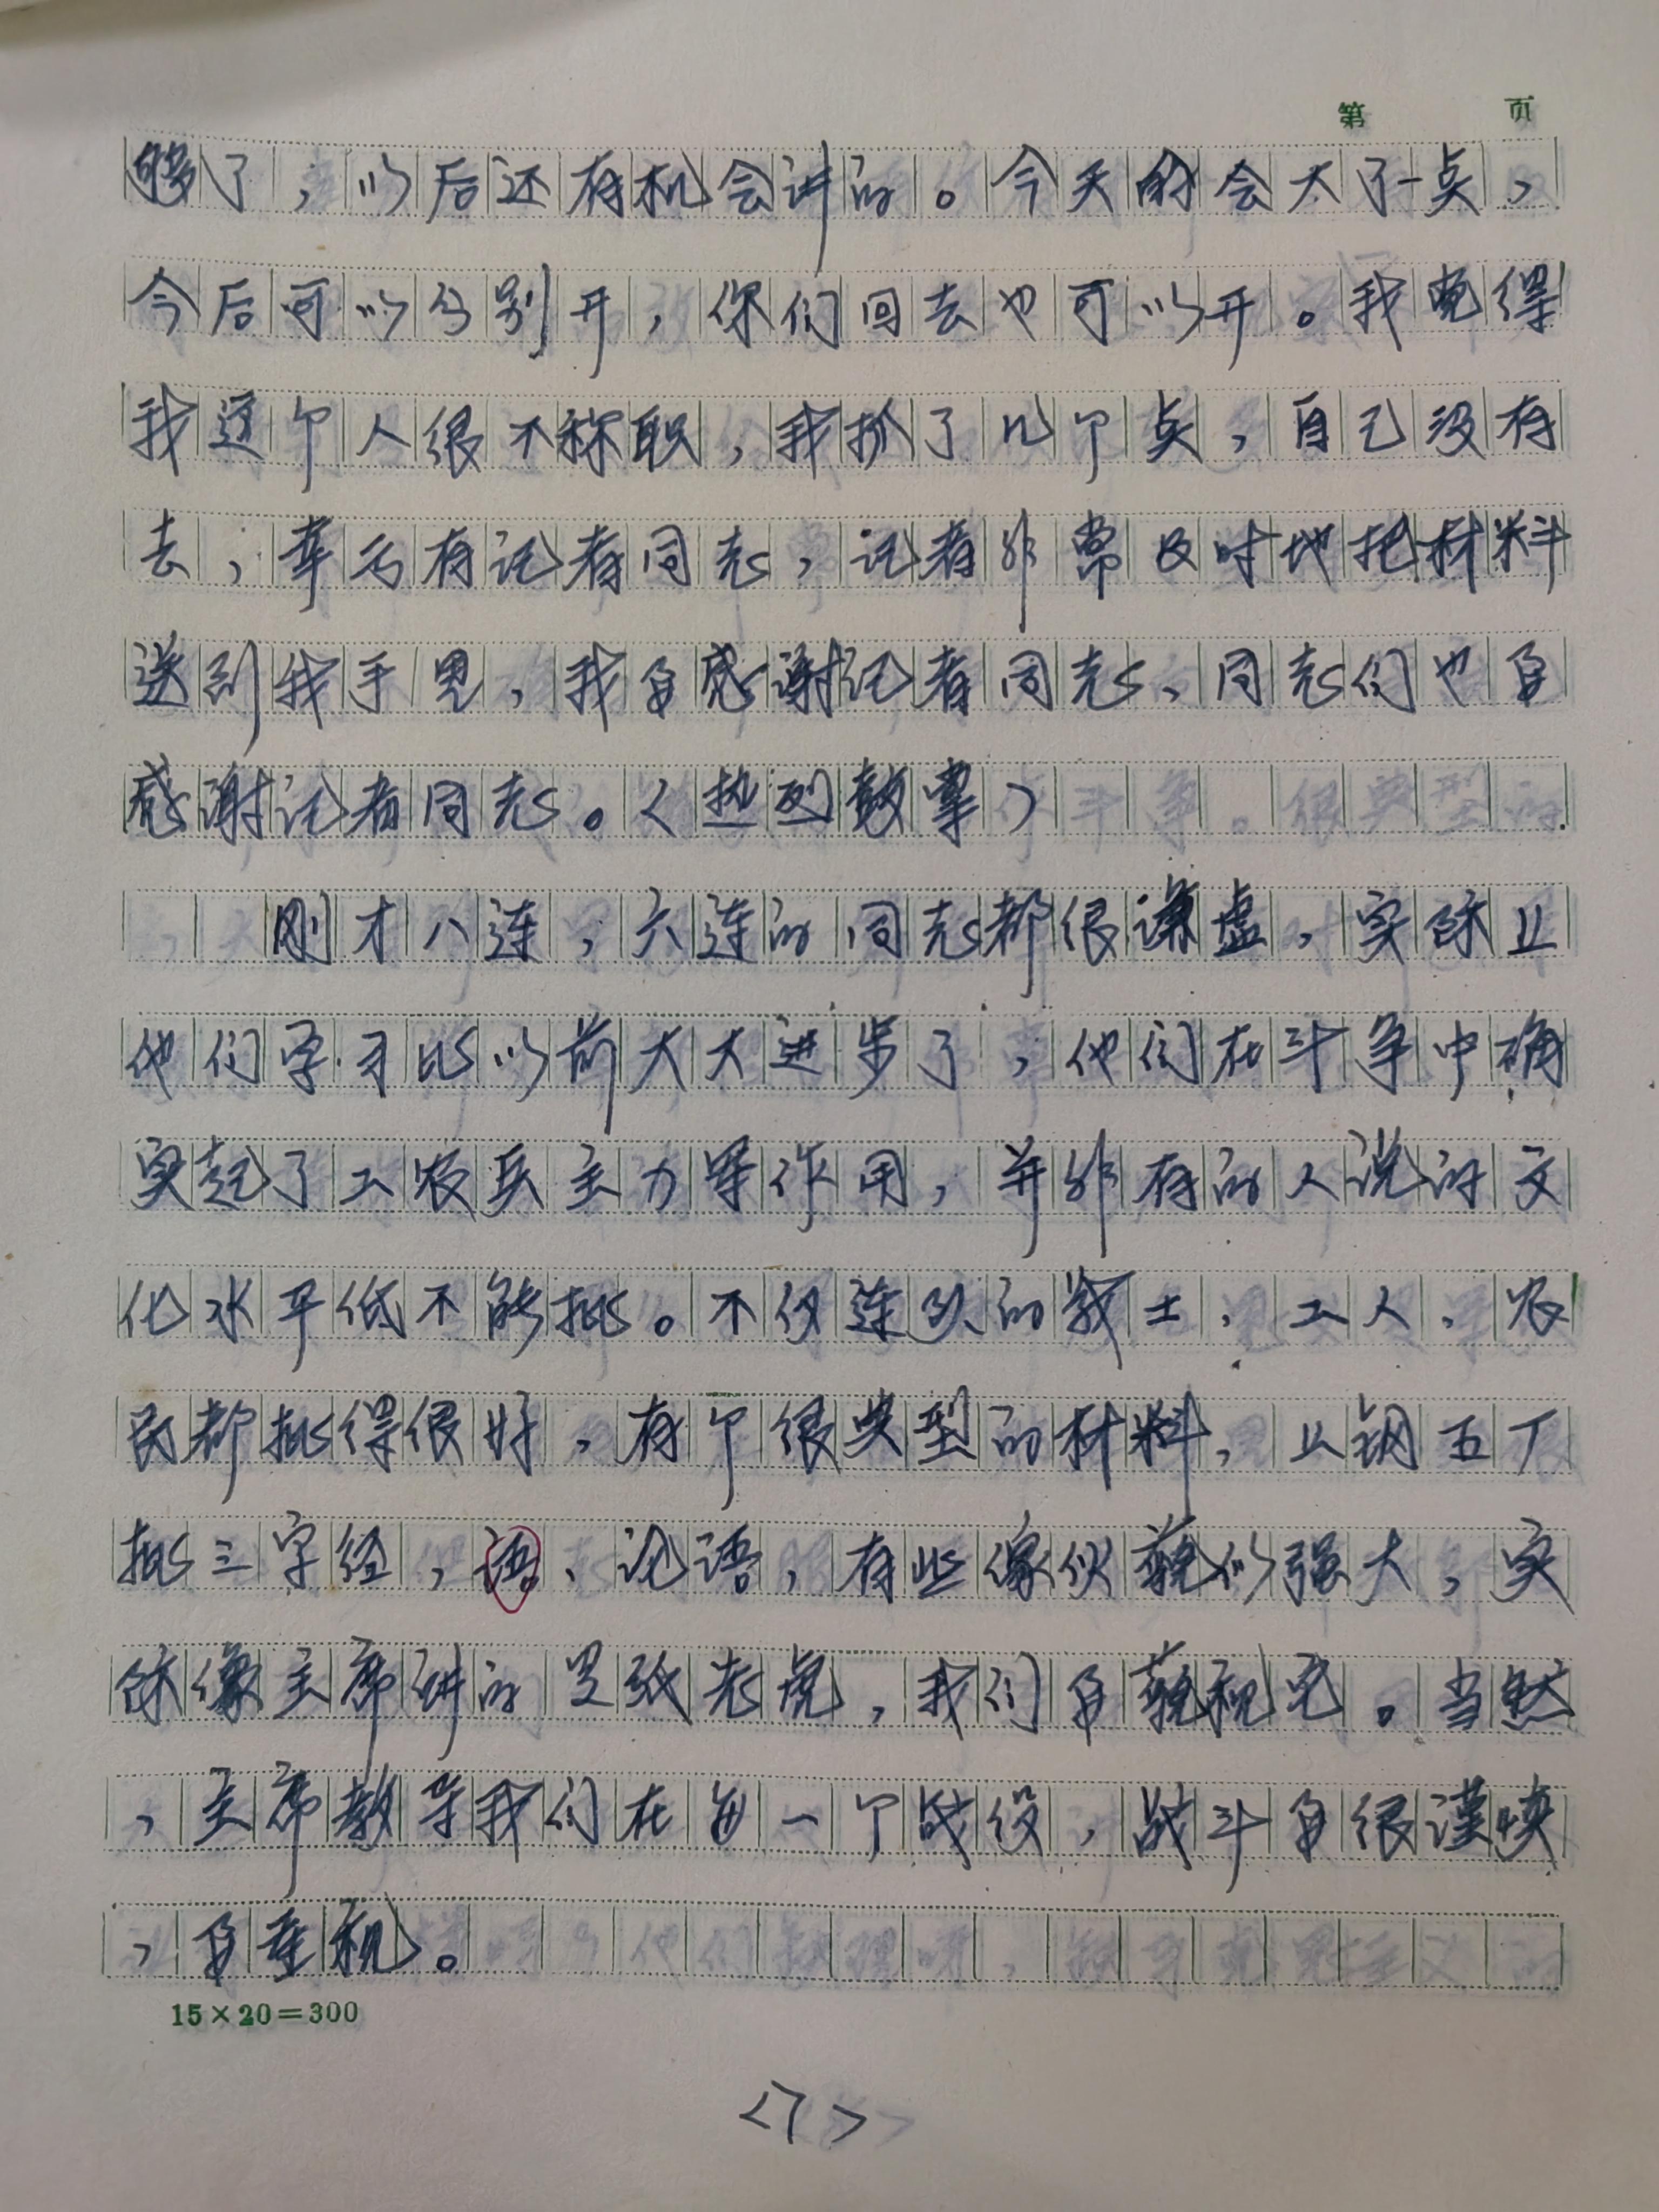 第 页
够了，以后还有机会讲的。今天的会大了一点，
今后可以分别开，你们回去也可以开。我觉得
我这个人很不称职，我抓了几个点，自己没有
去，幸而有记者同志，记者非常及时地把材料
送到我手里，我要感谢记者同志、同志们也要
感谢记者同志。〈热烈鼓掌〉
刚才八连，六连的同志都很谦虚，实际上
他们学习比以前大大进步了，他们在斗争中确
实起了工农兵主力军作用，并非有的人说的文
化水平低不能批。不仅连队的战士，工人，农
民都批得很好，有个很典型的材料，上钢五厂
批三字经，语、论语，有些傢伙藐似强大，实
际像主席讲的是纸老虎，我们要藐视它。当然
，主席教导我们在每一个战役，战斗要很谨慎
，要重视。
15×20=300
<7>